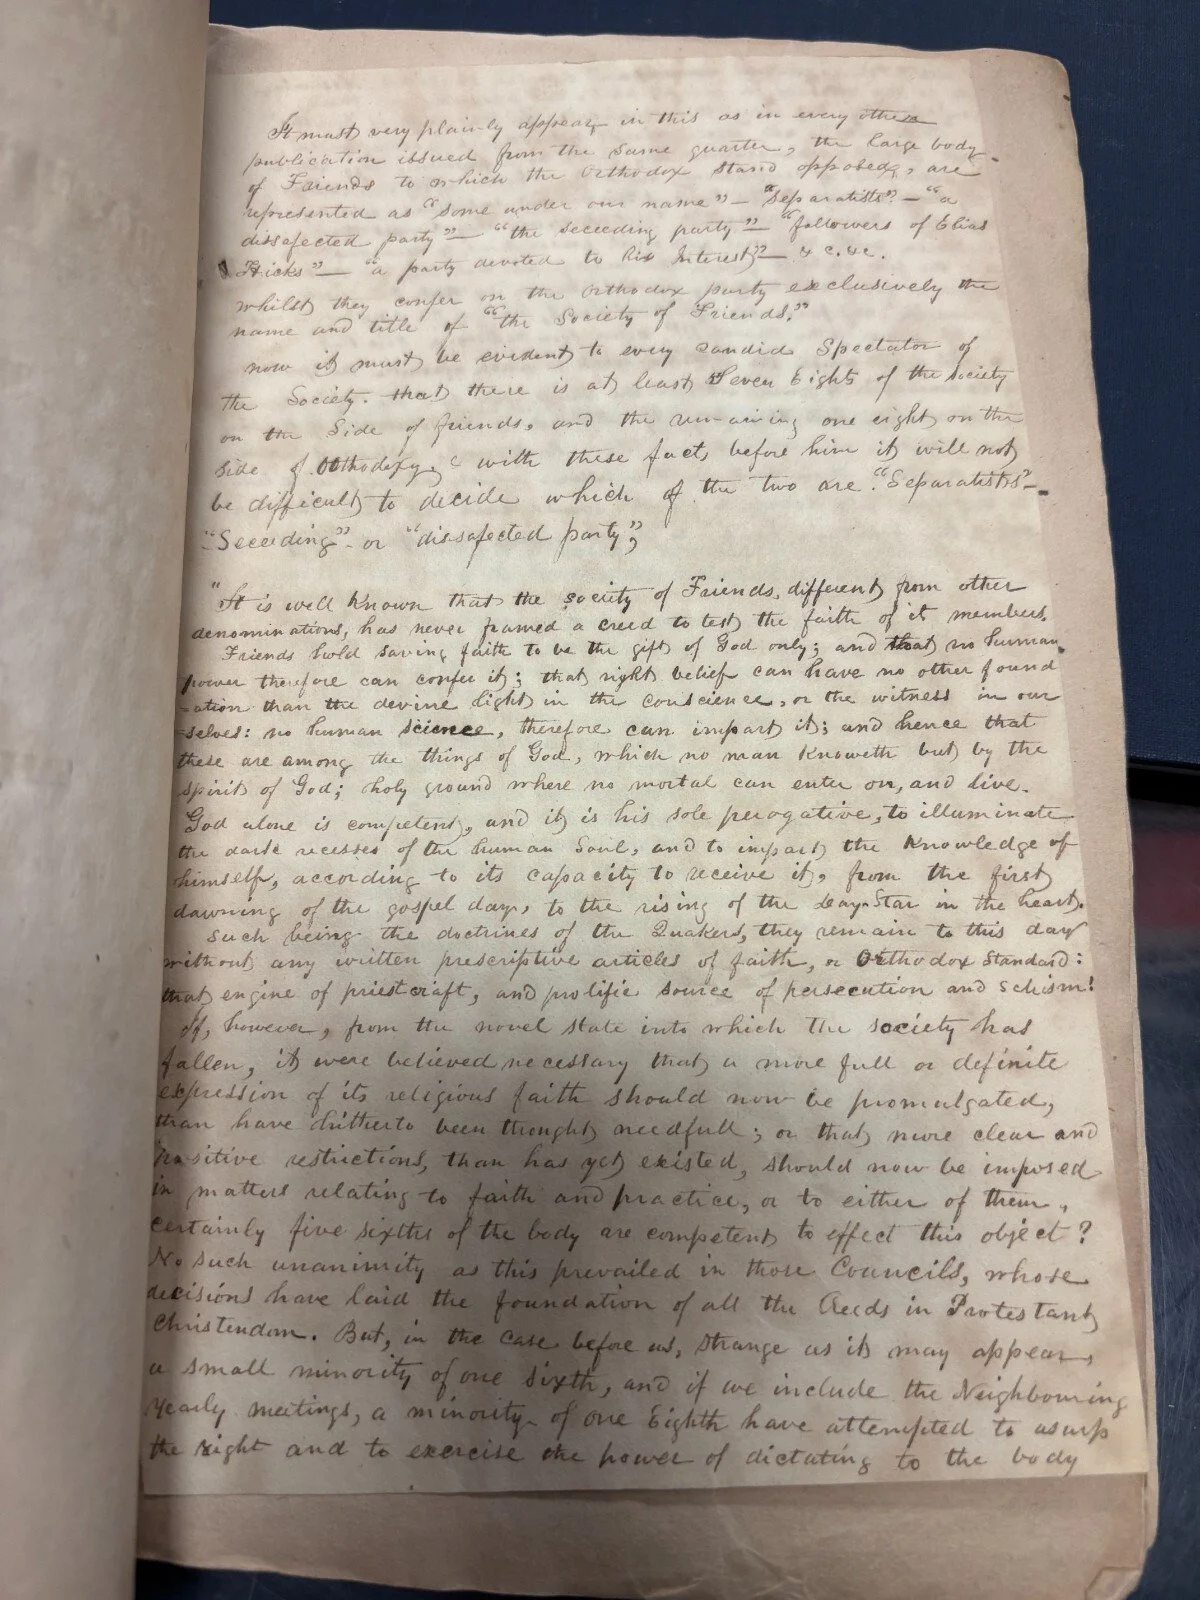 It must very plainly appear, in this as in every other
publication issued from the same quarter, the large body
of Friends to which the Orthodox stand opposed, are
represented as "some under our name" — "Separatists" — "a
dissafected party" — "the seceeding party" — "followers of Elias
Hicks" — "a party devoted to his Interest" — & c. &c.
whilst they confer on the Orthodox party exclusively the
name and title of "the Society of Friends."
now it must be evident to every candid Spectator of
the Society. that there is at least Seven Eights of the society
on the Side of friends, and the remaining one eight on the
side of Orthodoxy, & with these facts before him it will not
be difficult to decide which of the two are "Separatists" -
"Seceeding" - or "dissafected party";
"It is well known that the society of Friends, different from other
denominations, has never framed a creed to test the faith of it members.
Friends hold saving faith to be the gift of God only; and that no human
power therefore can confer it; that right belief can have no other found
-ation than the devine light in the conscience, or the witness in our
selves: no human science, therefore can impart it; and hence that
these are among the things of God, which no man knoweth but by the
spirit of God; holy ground where no mortal can enter on, and live.
God alone is competent, and it is his sole perogative, to illuminate
the dark recesses of the human Soul, and to impart the Knowledge of
himself, according to its capacity to receive it, from the first
dawning of the gospel day, to the rising of the Day-Star in the heart.
Such being the doctrines of the Quakers, they remain to this day
without any written prescriptive articles of faith, or Orthodox Standard:
that engine of priestcraft, and prolific source of persecution and schism!
If, however, from the novel state into which the society has
fallen, it were believed necessary that a more full or definite
expression of its religious faith should now be promulgated,
than have hitherto been thought needfull; or that more clear and
positive restrictions, than has yet existed, should now be imposed
in matters relating to faith and practice, or to either of them,
certainly five sixths of the body are competent to effect this object?
No such unanimity as this prevailed in those Councils, whose
decisions have laid the foundation of all the Creeds in Protestant
Christendom. But, in the case before us, strange as it may appear,
a small minority of one sixth, and if we include the Neighbouring
yearly meetings, a minority of one Eighth have attempted to usurp
the right and to exercise the power of dictating to the body